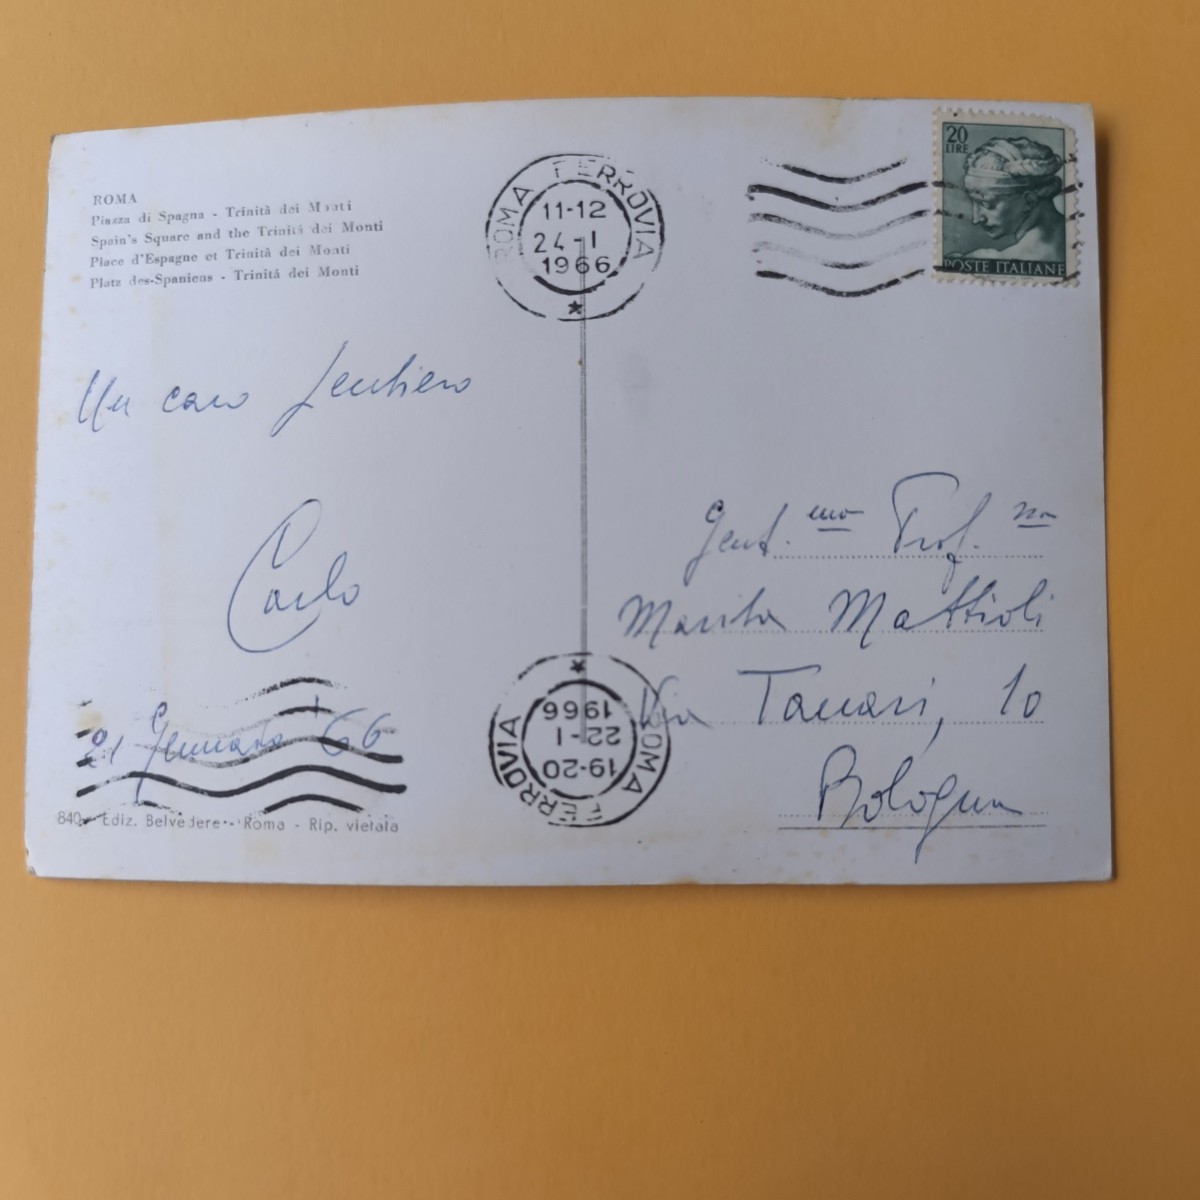 ROMA
Piazza di Spagna - Trinità dei Monti
Spain's Square and the Trinità dei Monti
Place d'Espagne et Trinità dei Monti
Platz des-Spaniens - Trinitá dei Monti
ROMA FERROVIA
11-12
24-1
1966
20
LIRE
POSTE ITALIANE
Un caro pensiero
Carlo
21 Gennaio '66
840 - Ediz. Belvedere - Roma - Rip. vietata
ROMA FERROVIA
19-20
22-1
1966
Gent.ma Prof.ssa
Marita Mattioli
Via Tanari, 10
Bologna